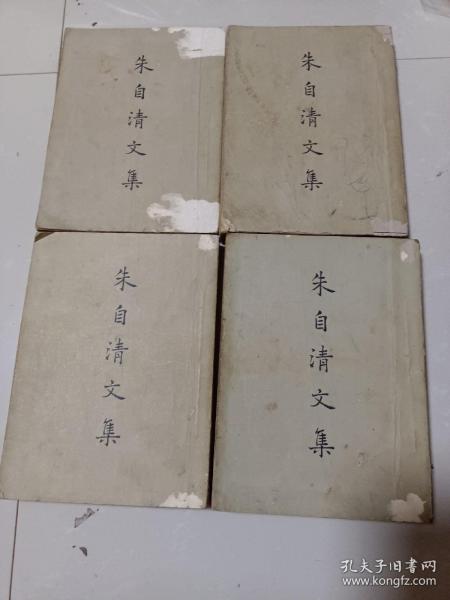 朱自清文集
朱自清文集
朱自清文集
朱自清文集
孔夫子旧书网
www.kongfz.com